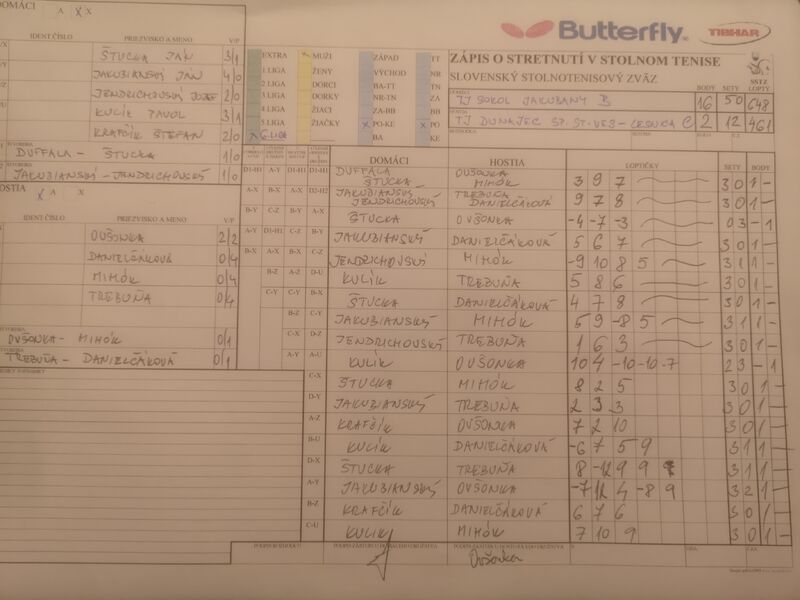 DOMÁCI A X X
Butterfly TIBHAR
IDENT.ČÍSLO PRIEZVISKO A MENO V/P
ŠTUCKA JÁN 3/1
JAKUBIANSKÝ JÁN 4/0
JENDRICHOVSKÝ JOZEF 2/0
KULÍK PAVOL 3/1
KRAFČÍK ŠTEFAN 2/0
DUFFALA - ŠTUCKA 1/0
JAKUBIANSKÝ - JENDRICHOVSKÝ 1/0
HOSTIA X A X
IDENT ČÍSLO PRIEZVISKO A MENO V/P
OVŠONKA 2/2
DANIELČÁKOVÁ 0/4
MIHÓK 0/4
TREBUŇA 0/4
OVŠONKA - MIHÓK 0/1
TREBUŇA - DANIELČÁKOVÁ 0/1
EXTRA MUŽI ZÁPAD TT
1 LIGA ŽENY VÝCHOD NR
2 LIGA DORCI BA-TT TN
3 LIGA DORKY NR-TN ZA
4 LIGA ŽIACI ZA-BB BB
5 LIGA ŽIAČKY X PO-KE X PO
X 6.LIGA BA KE
ZÁPIS O STRETNUTÍ V STOLNOM TENISE
SLOVENSKÝ STOLNOTENISOVÝ ZVÄZ
SSTZ
BODY SETY LOPTY
TJ SOKOL JAKUBANY B 16 50 648
TJ DUNAJEC SP. ST. VES - LESNICA C 2 12 461
DOMÁCI HOSTIA LOPTIČKY SETY BODY
DUFFALA ŠTUCKA OVŠONKA MIHÓK 3 9 7 3 0 1 -
JAKUBIANSKÝ JENDRICHOVSKÝ TREBUŇA DANIELČÁKOVÁ 9 7 8 3 0 1 -
ŠTUCKA OVŠONKA -4 -7 -3 0 3 - 1
JAKUBIANSKÝ DANIELČÁKOVÁ 5 6 7 3 0 1 -
JENDRICHOVSKÝ MIHÓK -9 10 8 5 3 1 1 -
KULÍK TREBUŇA 5 8 6 3 0 1 -
ŠTUCKA DANIELČÁKOVÁ 4 7 8 3 0 1 -
JAKUBIANSKÝ MIHÓK 5 9 -8 5 3 1 1 -
JENDRICHOVSKÝ TREBUŇA 1 6 3 3 0 1 -
KULÍK OVŠONKA 10 4 -10 -10 -7 2 3 - 1
ŠTUCKA MIHÓK 8 2 5 3 0 1 -
JAKUBIANSKÝ TREBUŇA 2 3 3 3 0 1 -
KRAFČÍK OVŠONKA 7 2 10 3 0 1 -
KULÍK DANIELČÁKOVÁ -6 7 5 9 3 1 1 -
ŠTUCKA TREBUŇA 8 -12 9 9 3 1 1 -
JAKUBIANSKÝ OVŠONKA -7 12 4 -8 9 3 2 1 -
KRAFČÍK DANIELČÁKOVÁ 6 7 6 3 0 1 -
KULÍK MIHÓK 7 10 9 3 0 1 -
Ovšonka